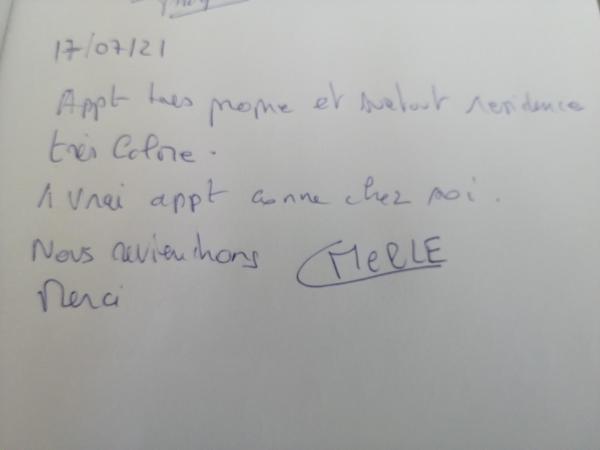 17/07/21
Appt très propre et surtout residence
très Calme.
1 vrai appt comme chez soi.
Nous reviendrons MERLE
Merci